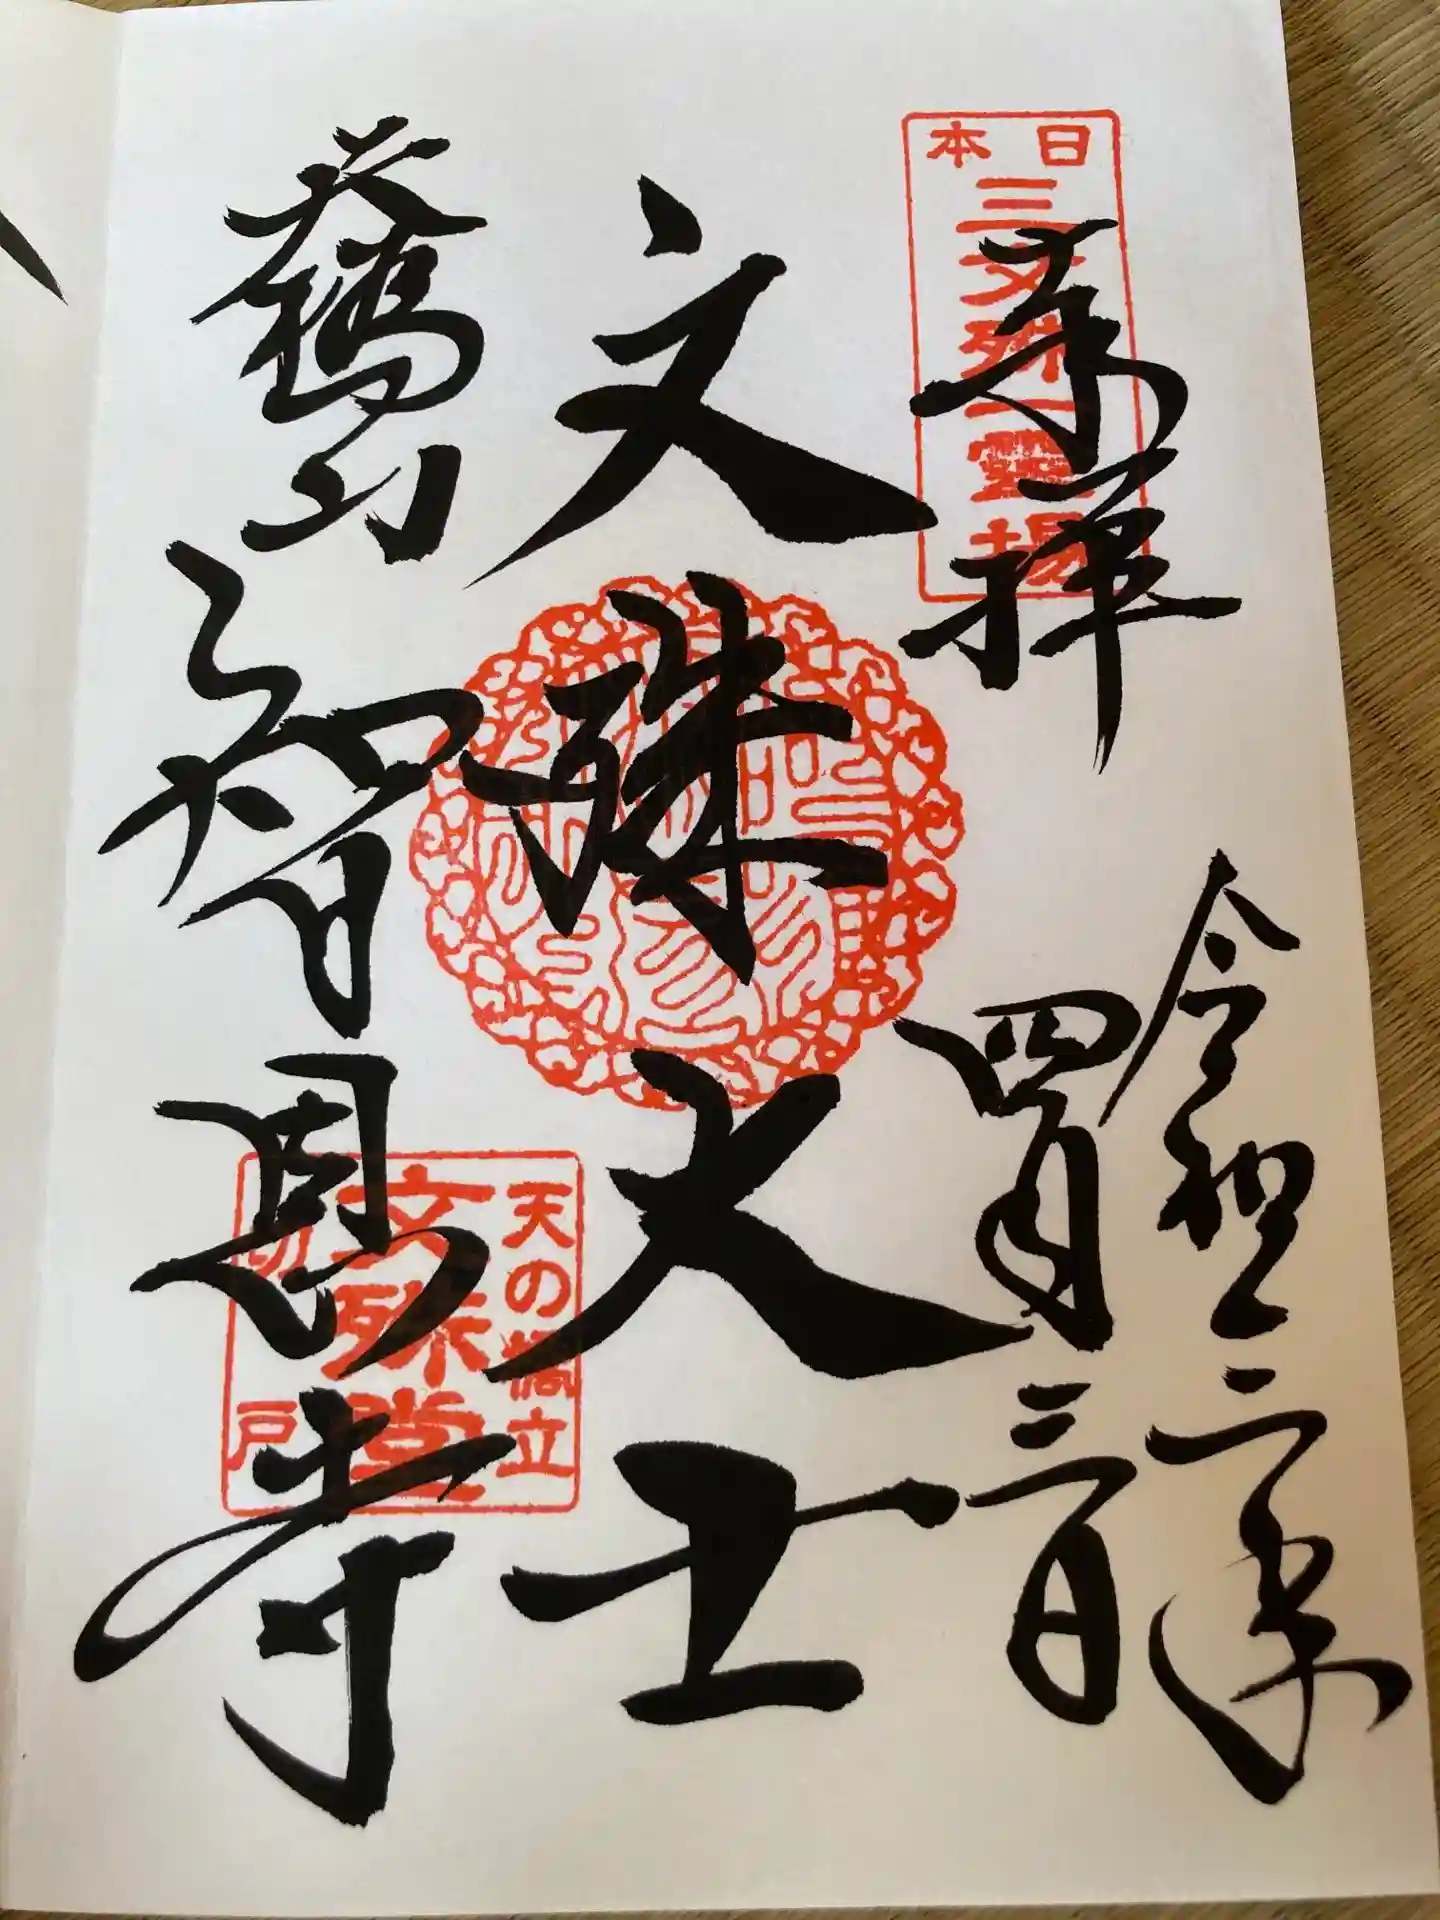 奉拝
令和三年
四月三日
文殊大士
天橋山
智恩寺
日本
三文殊一霊場
天の橋立
文殊堂
切戸